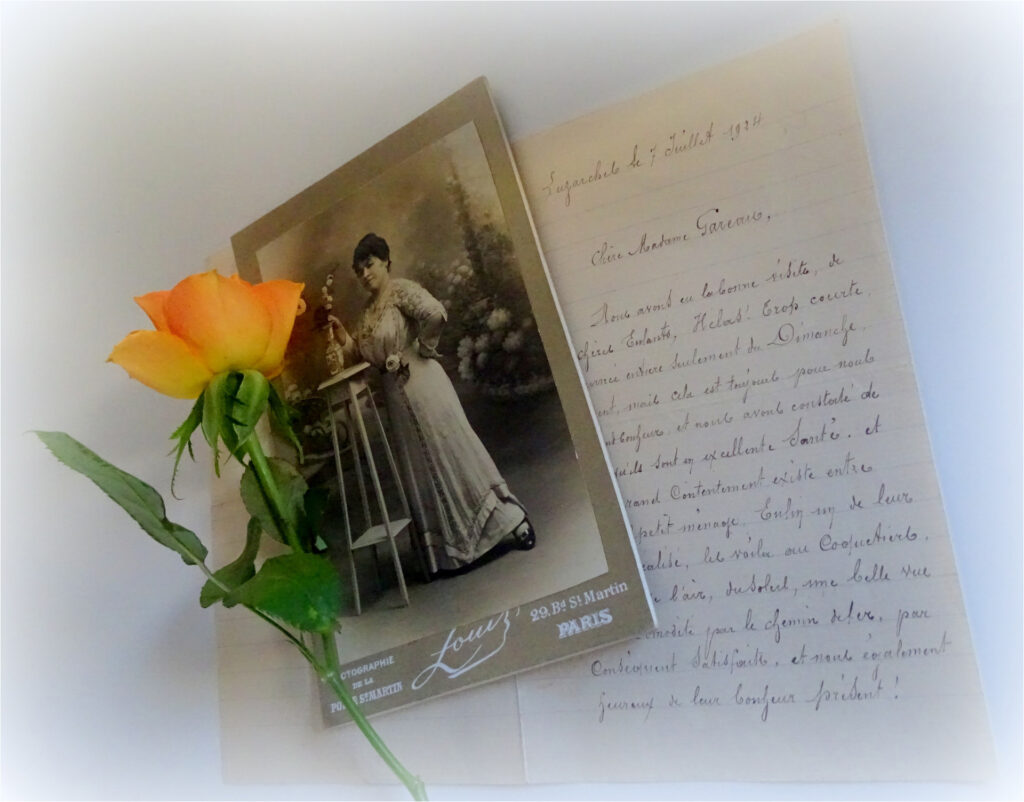 Luzarches le 7 Juillet 1924
Chère Madame Gareau,
Nous avons eu la bonne visite, de
chères Enfants, Hélas! trop courte.
entière seulement du Dimanche,
ent, mais cela est toujours pour nous
Bonheur, et nous avons constaté de
qu'ils sont en excellente Santé, et
rand Contentement existe entre
petit ménage. Enfin un de leur
éalisé, les voila au Coquetiers,
e l'air, du soleil, une belle vue
modité par le chemin defer, par
Conséquent Satisfaits, et nous également
heureux de leur bonheur présent!
OTOGRAPHIE
DE LA
PORTE St MARTIN
Louis
29. Bd St Martin
PARIS